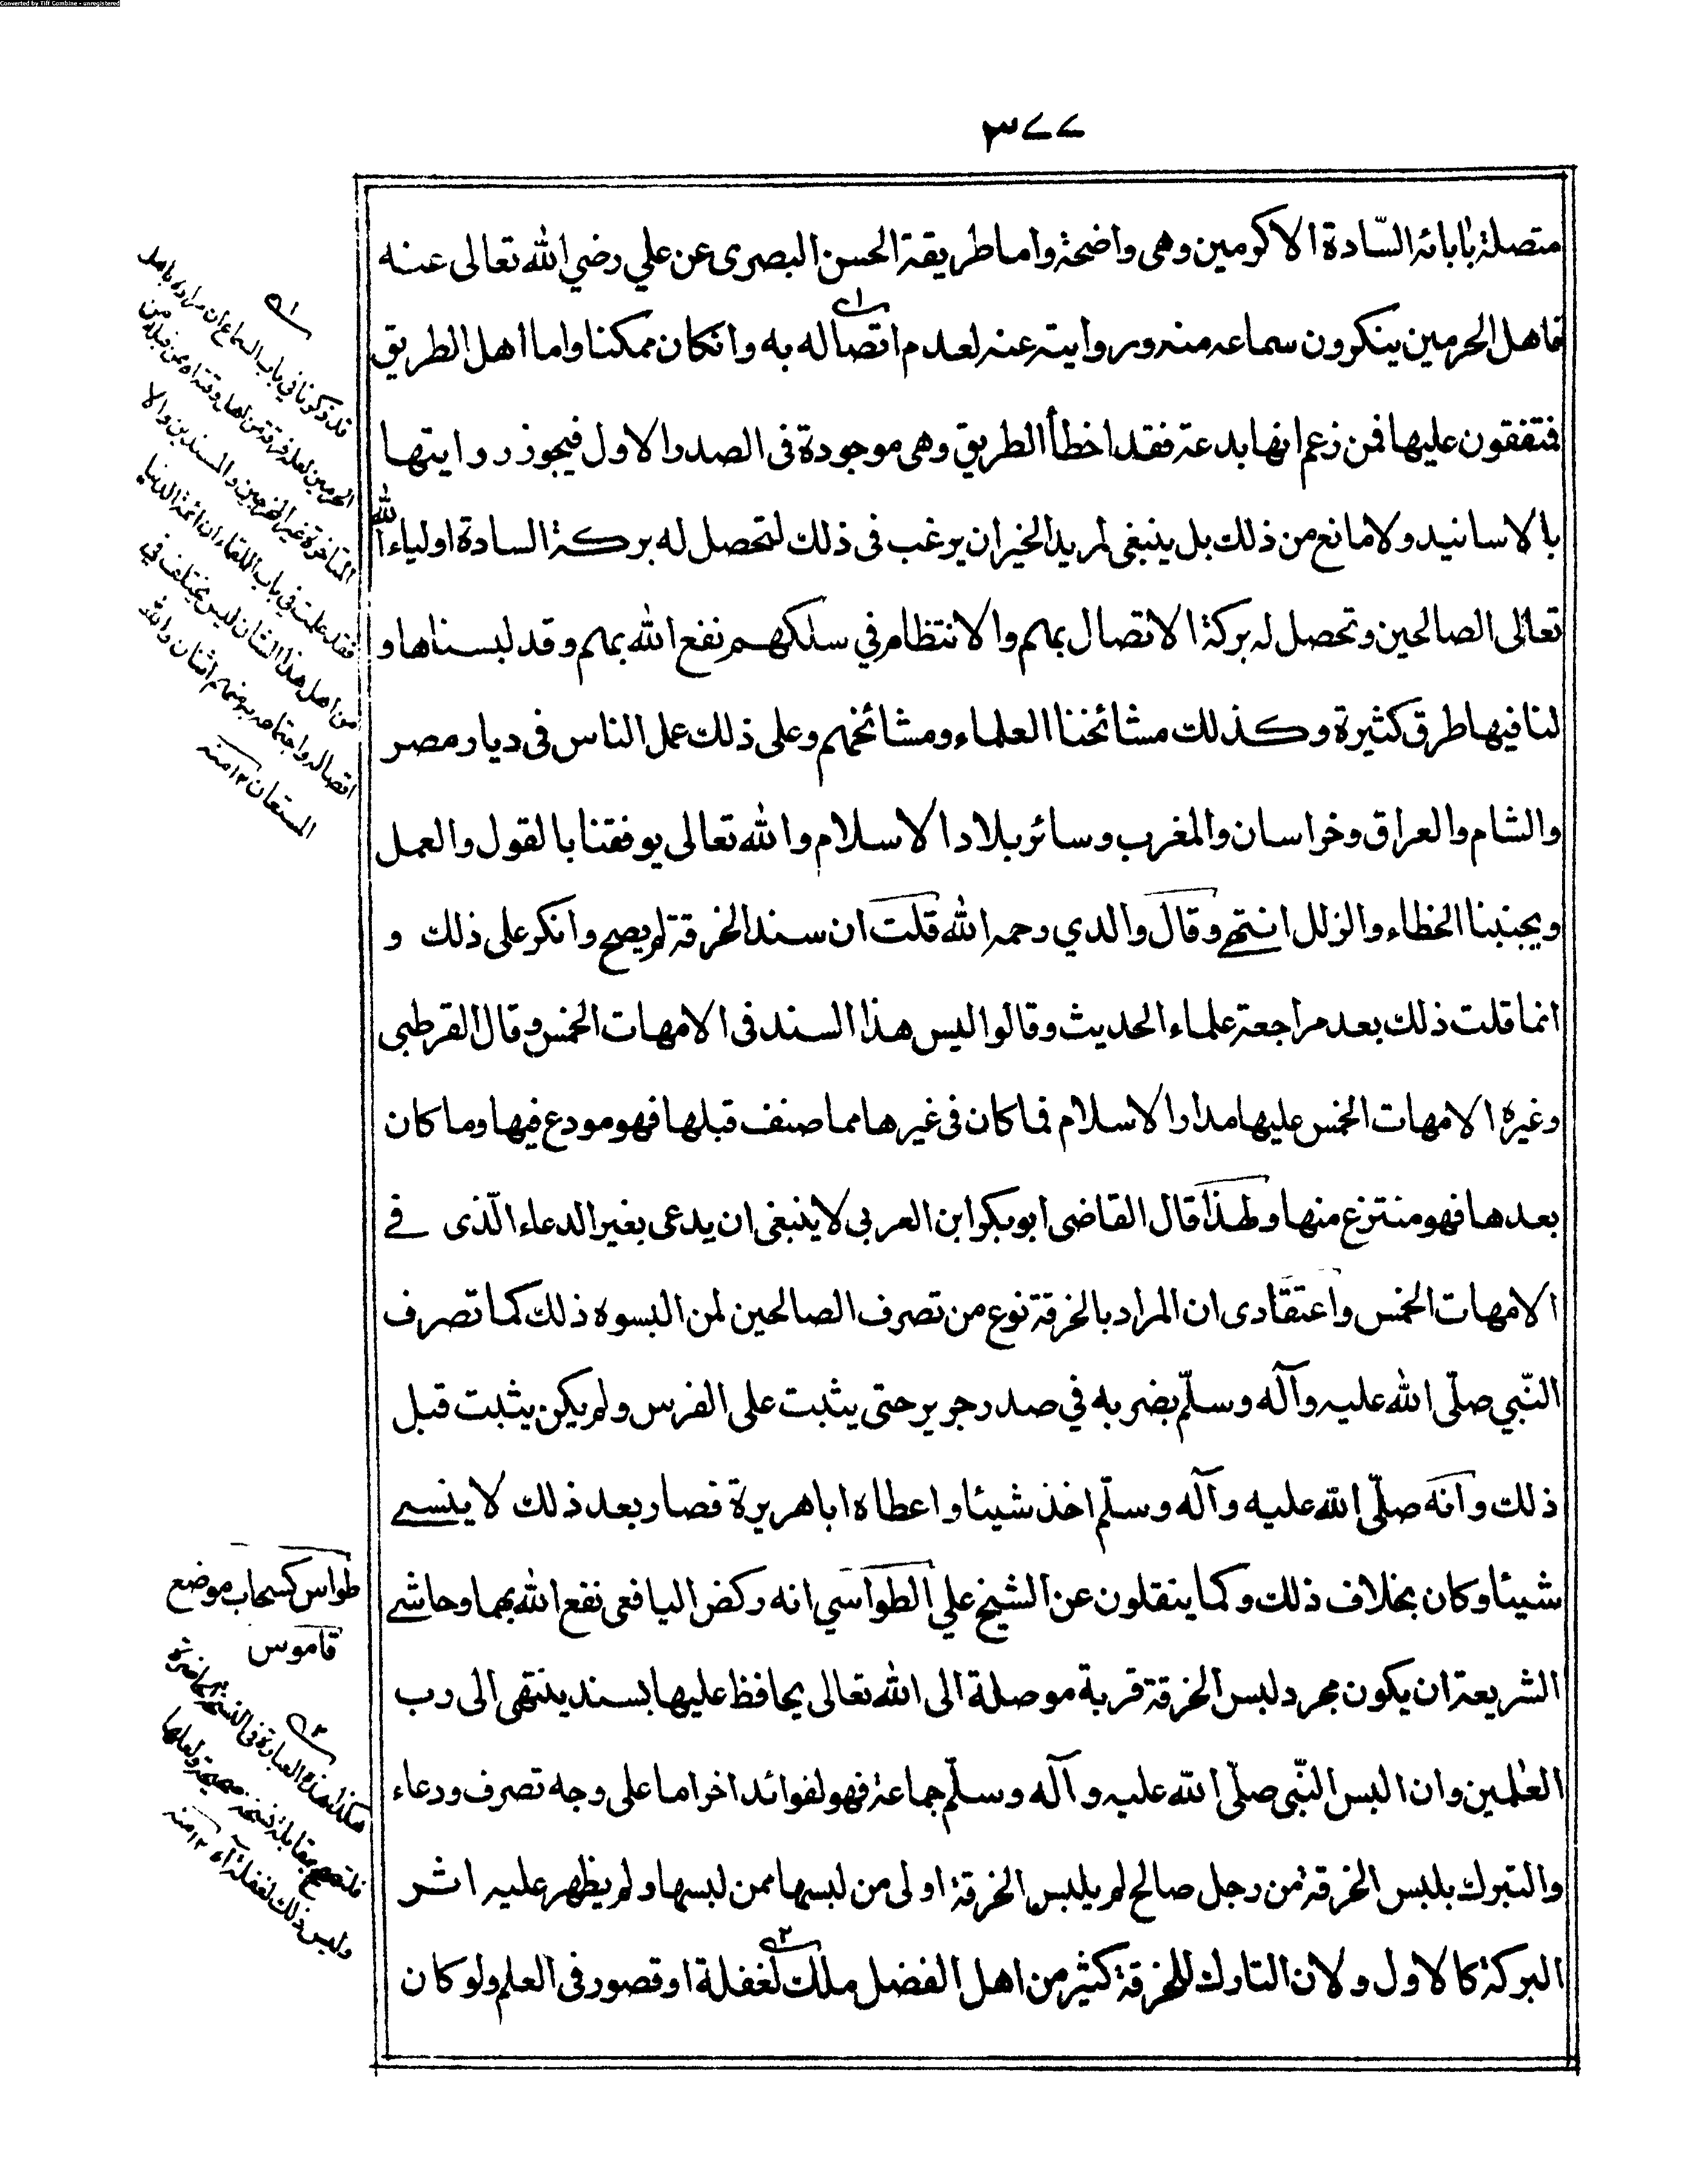 Converted by Tiff Combine - unregistered
٣٧٧
متصلة بٰابائه السّادة الاكرمين وهى واضحة واما طريقة الحسن البصرى عن علي رضي الله تعالى عنه
فاهل الحرمين ينكرون سماعه منه وروايته عنه لعدم اتصاله به وانكان ممكنا واما اهل الطريق
فمتفقون عليها فمن زعم انها بدعة فقد اخطأ الطريق وهى موجودة فى الصدر الاول فيجوز روايتها
بالاسانيد ولا مانع من ذلك بل ينبغى لمريد الخير ان يرغب فى ذلك لتحصل له بركة السادة اولياء الله
تعالى الصالحين وتحصل له بركة الاتصال بهم والانتظام في سلكهم نفع الله بهم وقد لبسناها و
لنا فيها طرق كثيرة وكذلك مشائخنا العلماء ومشائخهم وعلى ذلك عمل الناس فى ديار مصر
والشام والعراق وخراسان والمغرب وسائر بلاد الاسلام والله تعالى يوفقنا بالقول والعمل
ويجنبنا الخطاء والزلل انتهى وقال والدي رحمه الله قلت ان سند الخرقة لم يصح وانكر على ذلك و
انما قلت ذلك بعد مراجعة علماء الحديث وقالوا ليس هذا السند فى الامهات الخمس وقال القرطبى
وغيره الامهات الخمس عليها مدار الاسلام فما كان فى غيرها مما صنف قبلها فهو مودع فيها وما كان
بعدها فهو منتزع منها ولهذا قال القاضى ابوبكر ابن العربى لا ينبغى ان يدعى بغير الدعاء الّذى فى
الامهات الخمس واعتقادى ان المراد بالخرقة نوع من تصرف الصالحين لمن البسوه ذلك كما تصرف
النّبي صلّى الله عليه وآله وسلّم بضربه في صدر جرير حتى يثبت على الفرس ولم يكن يثبت قبل
ذلك وانه صلّى الله عليه وآله وسلّم اخذ شيئا واعطاه اباهريرة فصار بعد ذلك لا ينسى
شيئا وكان بخلاف ذلك وكما ينقلون عن الشيخ علي الطواسي انه ركض اليافعى نفع الله بهما وحاشى
الشريعة ان يكون مجرد لبس الخرقة قربة موصلة الى الله تعالى يحافظ عليها بسند ينتهى الى رب
العٰلمين وان البس النّبى صلّى الله عليه وآله وسلّم جماعة فهو لفوائد اخر اما على وجه تصرف ودعاء
والتبرك بلبس الخرقة من رجل صالح لم يلبس الخرقة اولى من لبسها ممن لبسها ولم يظهر عليه اثر
البركة كالاول ولان التارك للخرقة كثير من اهل الفضل ملك لغفلة او قصور فى العلم ولو كان
١ قد ذكرنا في باب السماع ان مراده باهل
الحرمين لعله فرقة من اهل وقته او من قبله من
المتأخرة غير المخرجين والمسندين والا
فقد علمت في باب اللقاء ان ائمة الدنيا
من اهل هذا الشان ليس يختلف في
اتصاله واجتماعه به منهم اثنان والله
المستعان ١٢ منه
طواس كسحاب موضع
قاموس
٢ هكذا هذه العبارة فى النسخة الحاضرة
فلتصحح بمقابلة نسخة صحيحة ولعلها
وليس ذلك لغفلة آه ١٢ منه